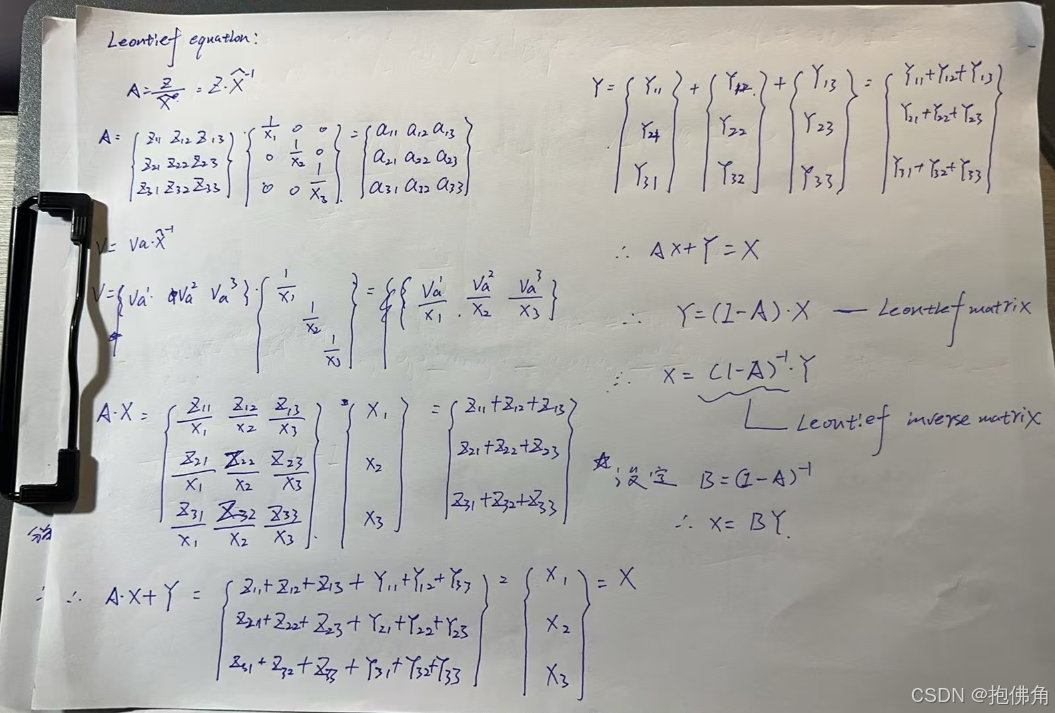 Leontief equation:
A = Z/X̂ = Z·X̂⁻¹
A = {Z11 Z12 Z13; Z21 Z22 Z23; Z31 Z32 Z33} · {1/X1 0 0; 0 1/X2 0; 0 0 1/X3} = {a11 a12 a13; a21 a22 a23; a31 a32 a33}
V = Va·X̂⁻¹
V = {Va¹ Va² Va³} · {1/X1 1/X2 1/X3} = {Va¹/X1 Va²/X2 Va³/X3}
A·X = {Z11/X1 Z12/X2 Z13/X3; Z21/X1 Z22/X2 Z23/X3; Z31/X1 Z32/X2 Z33/X3} · {X1; X2; X3} = {Z11+Z12+Z13; Z21+Z22+Z23; Z31+Z32+Z33}
∴ A·X+Y = {Z11+Z12+Z13+Y11+Y12+Y33; Z21+Z22+Z23+Y21+Y22+Y23; Z31+Z32+Z33+Y31+Y32+Y33} = {X1; X2; X3} = X
Y = {Y11; Y21; Y31} + {Y12; Y22; Y32} + {Y13; Y23; Y33} = {Y11+Y12+Y13; Y21+Y22+Y23; Y31+Y32+Y33}
∴ AX+Y=X
∴ Y=(I-A)·X — Leontief matrix
∴ X=(I-A)⁻¹·Y
Leontief inverse matrix
☆设定 B=(I-A)⁻¹
∴ X=BY.
CSDN @抱佛角